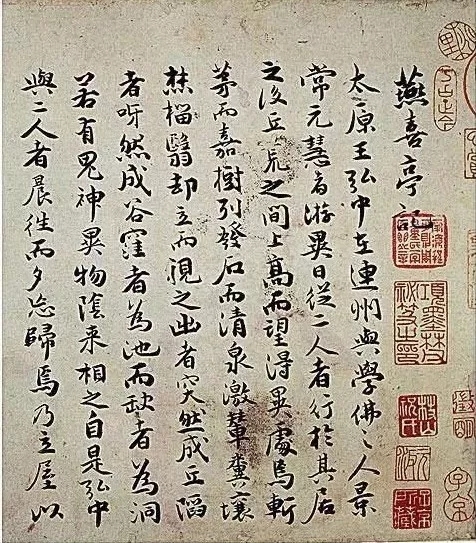 燕喜亭記
太原王弘中在連州與學佛之人景
常元慧者游異日從二人者行於其居
之後丘荒之間上高而望得異處焉斬
茅而嘉樹列發石而清泉激輦糞壤
焚椔翳却立而視之出者突然成丘陷
者呀然成谷窪者為池而缺者為洞
若有鬼神異物陰來相之自是弘中
與二人者晨往而夕忘歸焉乃立屋以
項墨林
祕笈之印
子京